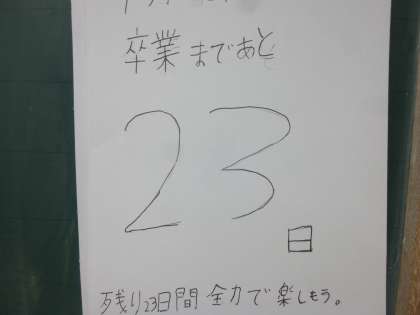 卒業まであと
23
日
残り23日間全力で楽しもう。